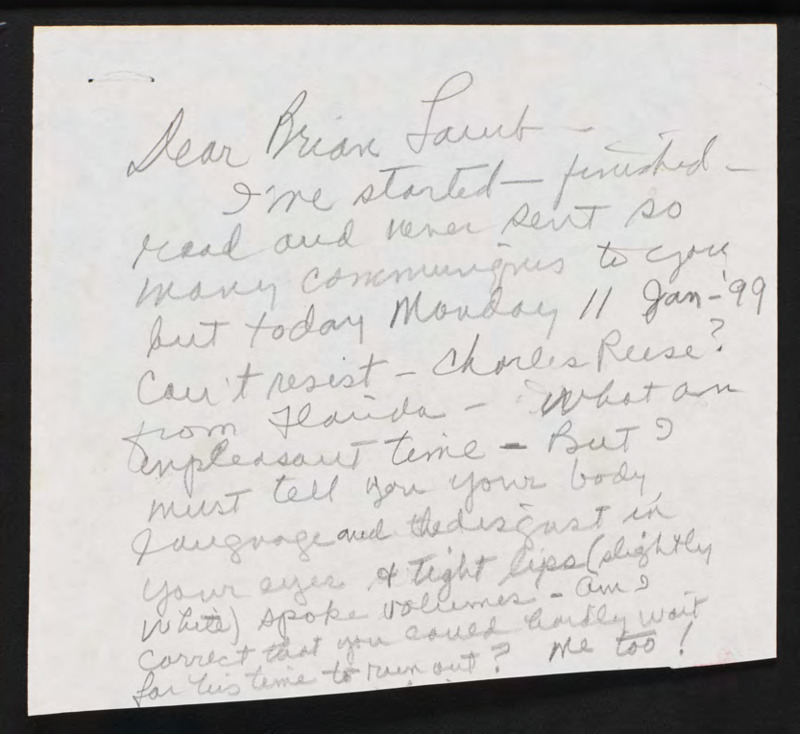 Dear Brian Lamb -
I've started - finished -
read and never sent so
many communiques to you
but today Monday 11 Jan-'99
Can't resist - Charles Reese?
from Florida - What an
unpleasant time - But I
must tell you your body
language and the disgust in
your eyes & tight lips (slightly
white) spoke volumes - am I
correct that you could hardly wait
for his time to run out? Me too!